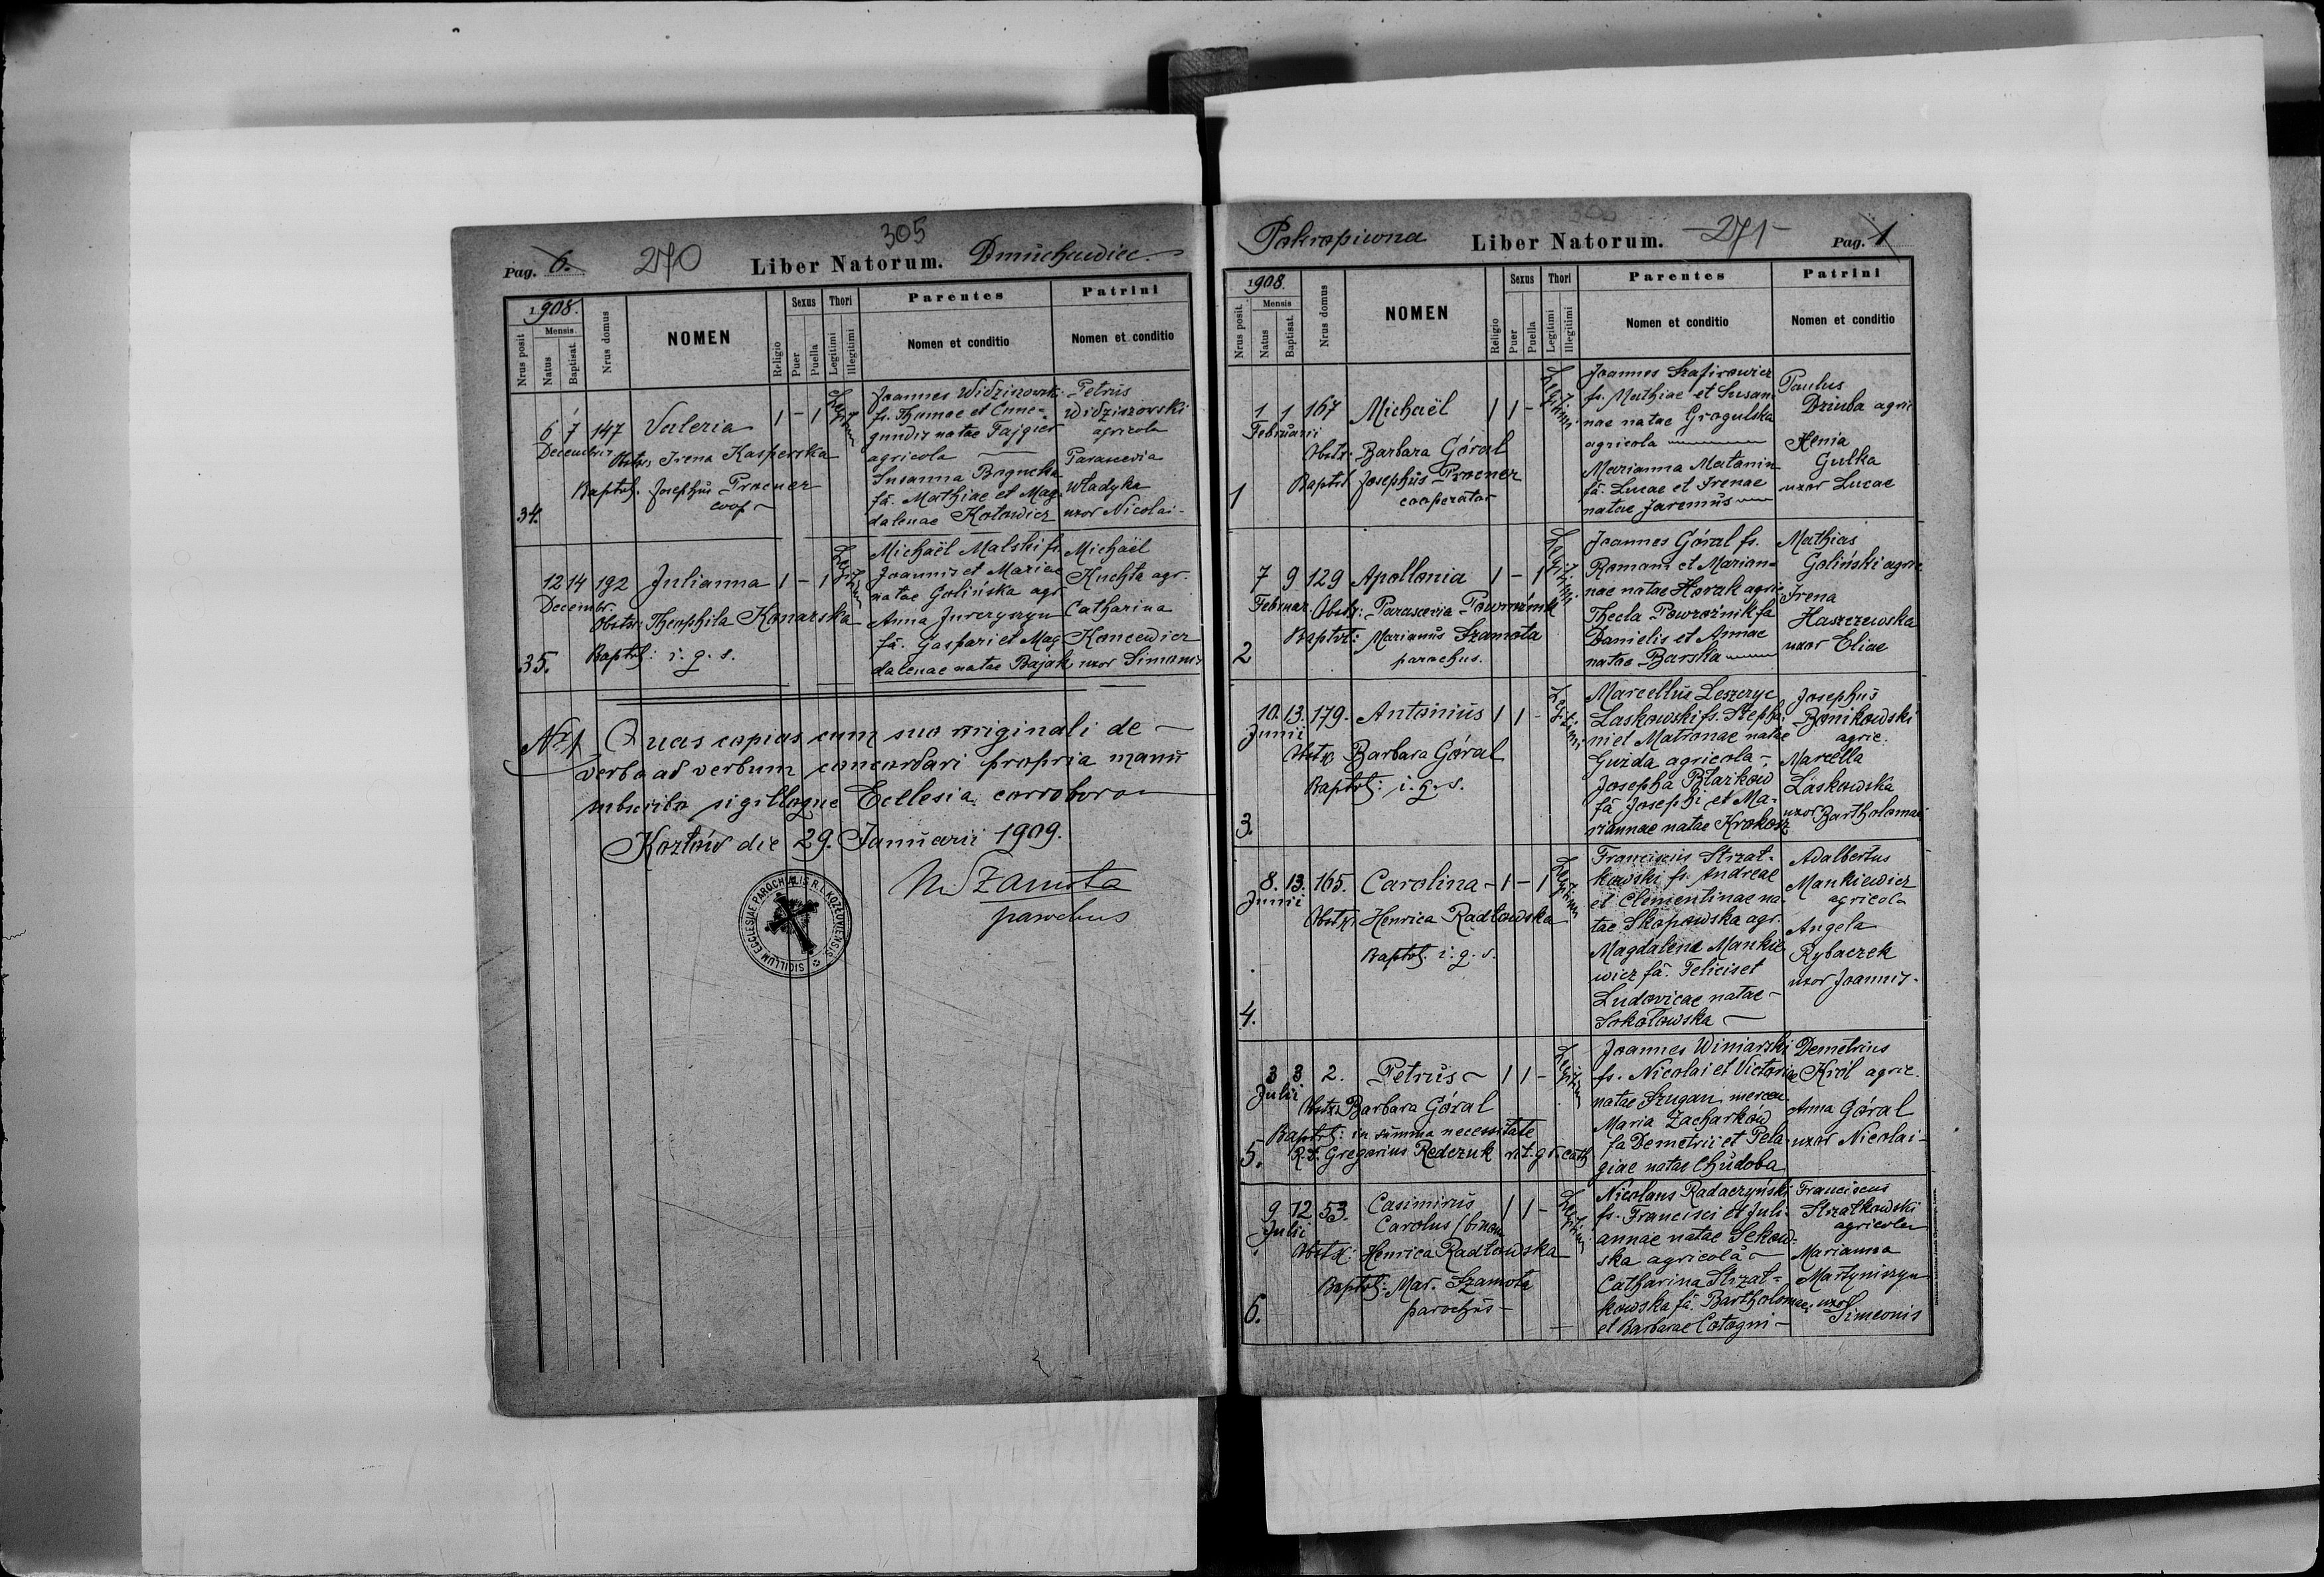 305
Pag. 6. 270 Liber Natorum. Dmuchawiec
1908.
Nrus posit
Mensis
Natus
Baptisat.
Nrus domus
NOMEN
Religio
Sexus
Puer
Puella
Thori
Legitimi
Illegitimi
Parentes
Nomen et conditio
Patrini
Nomen et conditio
6 7 147 Valeria 1 - 1 Legitimi
Decembris
Obstx. Irena Kasperska
Baptst. Josephus Procner
coop
34.
Joannes Widziszowski
fs. Thomae et Cune-
gundis natae Fajgier
agricola
Susanna Bogucka
fa. Mathiae et Mag-
dalenae Kotowicz
Petrus
Widziszovski
agricola
Parascevia
Władyka
uxor Nicolai
12 14 192 Julianna 1 - 1 Legitimi
Decembr.
Obstx: Theophila Konarska
Baptst: i. q. s.
35.
Michaël Malski fs.
Joannis et Mariae
natae Golińska agr
Anna Jurczyszyn
fa. Gaspari et Mag
dalenae natae Bajak
Michaël
Kuchta agr.
Catharina
Koncewicz
uxor Simonis
Nr 1 Quas copias cum suo originali de
verbo ad verbum concordari propria manu
subscribo sigilloque Ecclesia corroboro
Kozłów die 29. Januarii 1909.
M. Szamota
parochus
SIGILLUM ECCLESIAE PAROCHIALIS R. L. KOZŁOVIENSIS
Pokropiwna Liber Natorum. -271- Pag. 1
1908.
Nrus posit.
Mensis
Natus
Baptisat.
Nrus domus
NOMEN
Religio
Sexus
Puer
Puella
Thori
Legitimi
Illegitimi
Parentes
Nomen et conditio
Patrini
Nomen et conditio
1 1 167 Michaël 1 1 - Legitimi
Februarii
Obstx: Barbara Góral
Baptst Josephus Procner
cooperator
1
Joannes Szafirowicz
fs. Mathiae et Susan-
nae natae Grogulska
agricola
Marianna Matanin
fa. Lucae et Irenae
natae Jaremus
Paulus
Dziuba agric
Henia
Gulka
uxor Lucae
7 9 129 Apollonia 1 - 1 Legitimi
Februar. Obstx: Parascevia Powroźnik
Baptst: Marianus Szamota
parochus.
2
Joannes Góral fs.
Romani et Marian-
nae natae Horak agric
Thecla Powroźnik fa
Danielis et Annae
natae Barska
Mathias
Goliński agric.
Irena
Haszczewska
uxor Eliae
10. 13. 179. Antonius 1 1 - Legitimi
Junii
Obstx Barbara Góral
Baptst: i. q. s.
3.
Marcellus Leszczyc
Laskowski fs. Stepha-
ni et Matronae natae
Guzda agricola
Josepha Błażków
fa Josephi et Ma-
riannae natae Krokosz
Josephus
Bonikowski
agric.
Marcella
Laskowska
uxor Bartholomaei
8. 13. 165. Carolina - 1 - 1 Legitimi
Junii
Obstx. Henrica Radłowska
Baptst. i. q. s.
4.
Franciscus Strzał-
kowski fs. Andreae
et Clementinae na-
tae Skopowska agr.
Magdalena Mankie
wicz fa. Felicis et
Ludovicae natae
Sokołowska
Adalbertus
Mankiewicz
agricola
Angela
Rybaczek
uxor Joannis
3 3 2. Petrus 1 1 - Legitimi
Julii
Obstx Barbara Góral
Baptst: in summa necessitate
R. d. Gregorius Redczuk rit. gr. cath
5.
Joannes Winiarski
fs. Nicolai et Victoriae
natae Szugan mercen
Maria Zacharków
fa Demetrii et Pela-
giae natae Chudoba
Demetrius
Król agric.
Anna Góral
uxor Nicolai
9 12 53. Casimirus 1 1 - Legitimi
Julii
Carolus /binom
Obstx: Henrica Radłowska
Baptst: Mar. Szamota
parochus
6.
Nicolaus Radaczyński
fs. Francisci et Juli-
annae natae Sekow-
ska agricola
Catharina Strzał-
kowska fa. Bartholomaei
et Barbarae Cotogni
Franciscus
Strzałkowski
agricola
Marianna
Martyniszyn
uxor
Simeonis